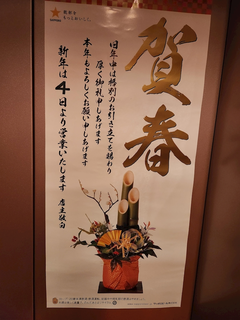 賀春
旧年中は格別のお引き立てを賜わり
厚く御礼申しあげます
本年もよろしくお願い申しあげます
新年は4日より営業いたします 店主敬白